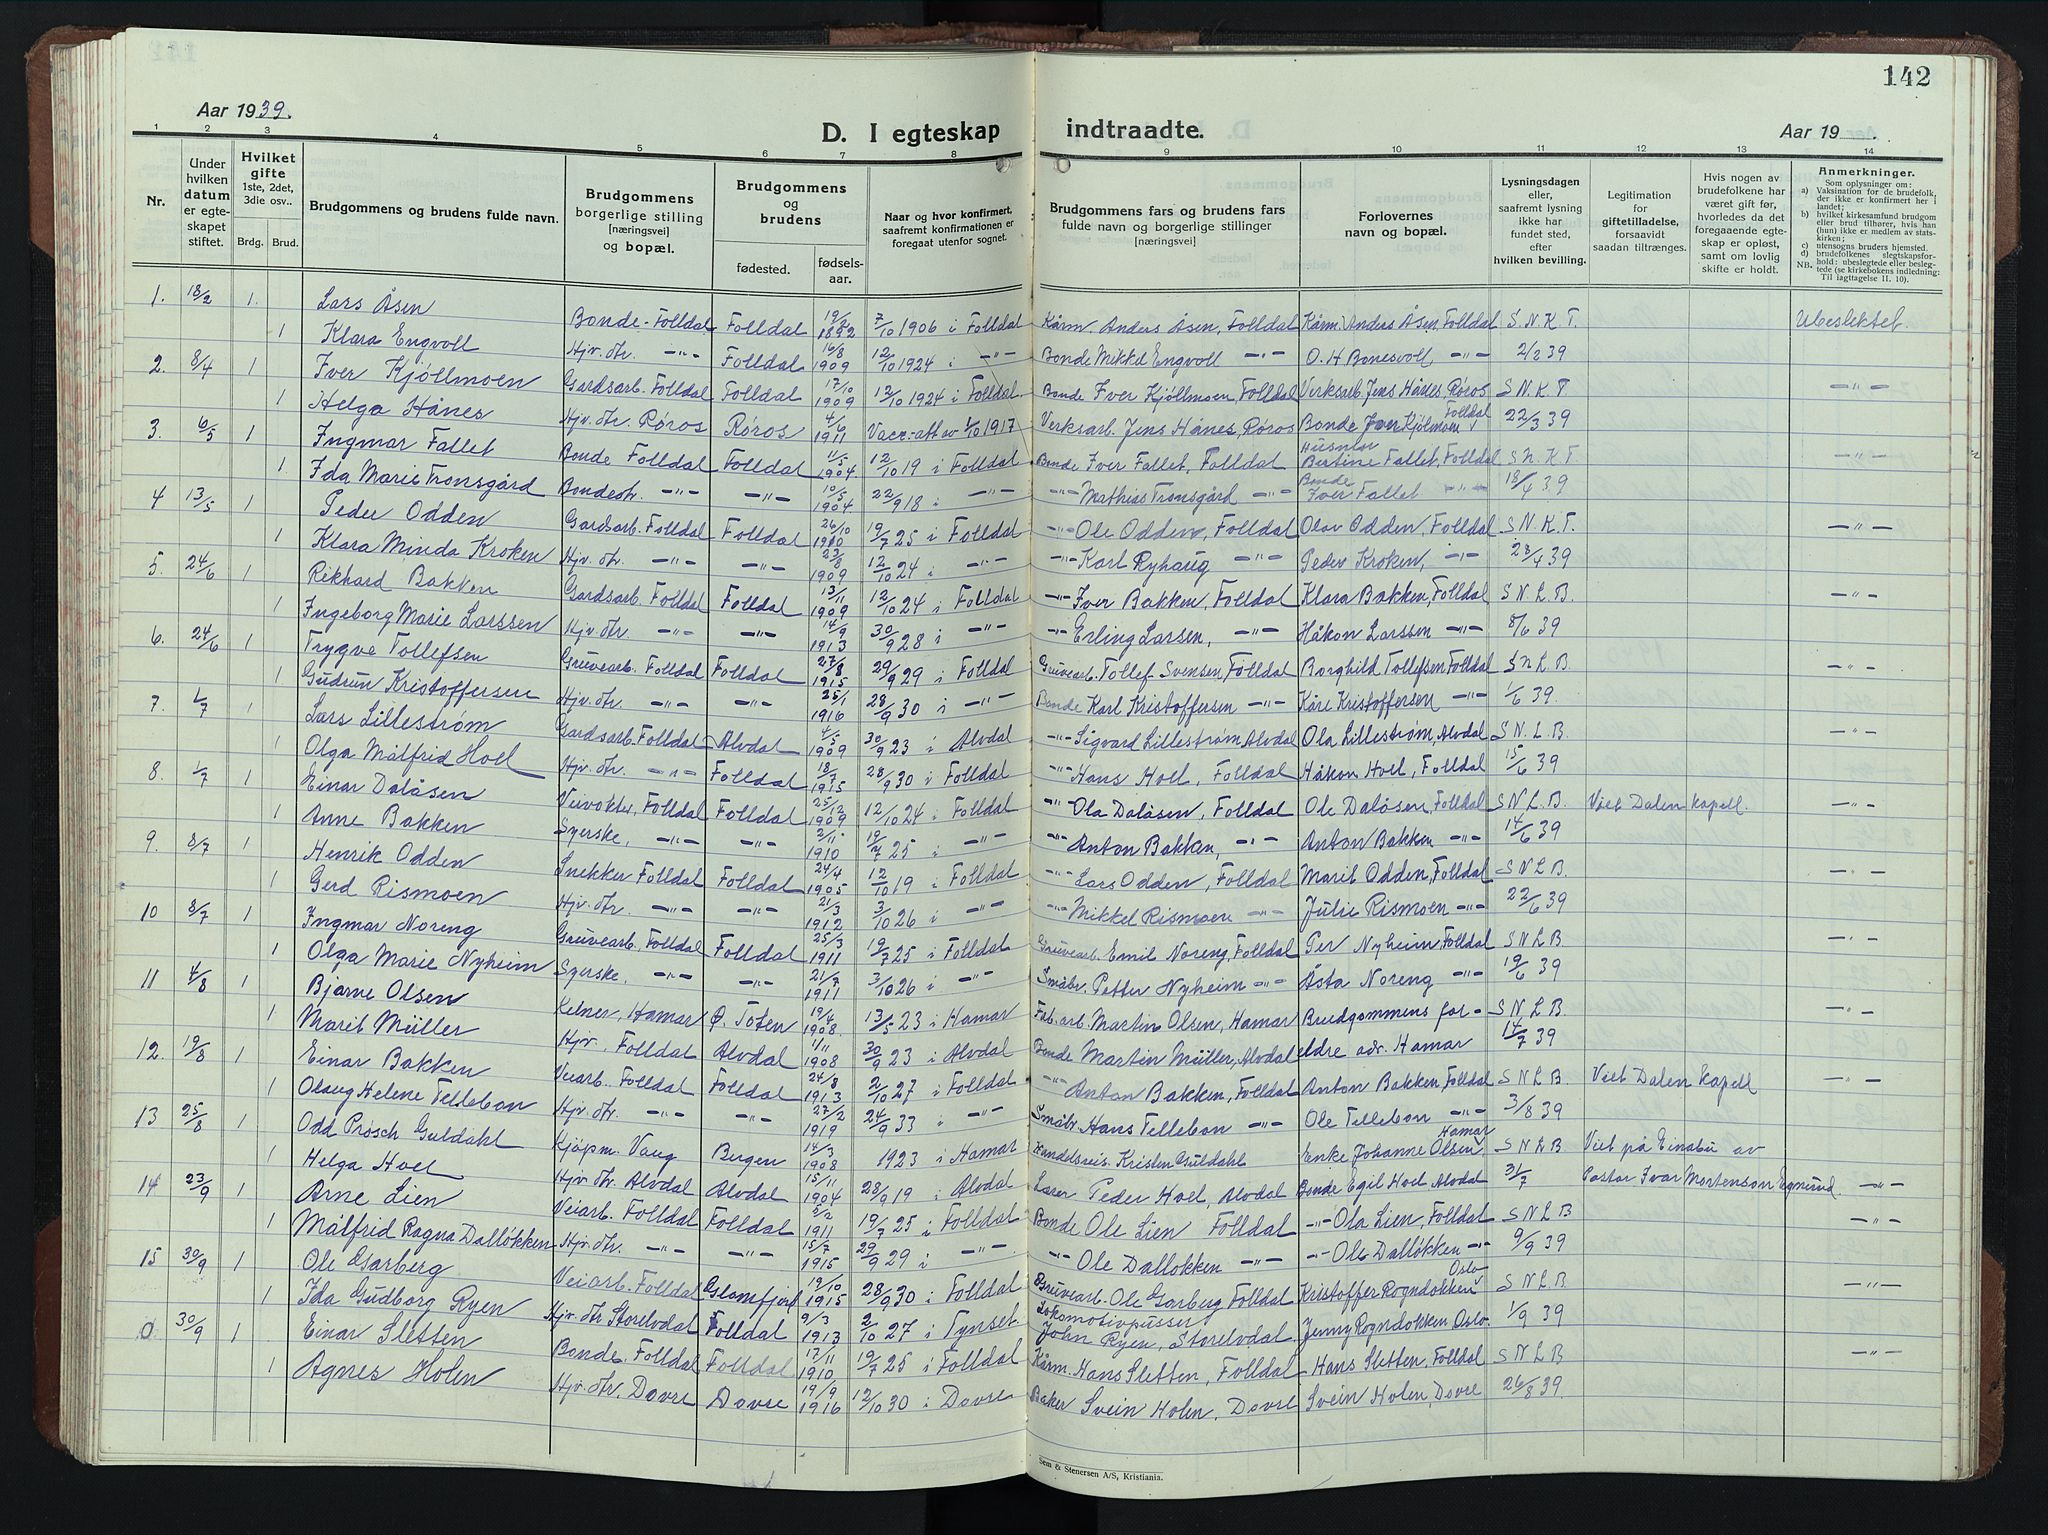 142
Aar 1939.
D. I egteskap indtraadte.
Aar 19
1 2 3 4 5 6 7 8 9 10 11 12 13 14
Nr.
Under hvilken datum er egteskapet stiftet.
Hvilket gifte 1ste, 2det, 3die osv.. Brdg. Brud.
Brudgommens og brudens fulde navn.
Brudgommens borgerlige stilling [næringsvei] og bopæl.
Brudgommens og brudens
fødested. fødselsaar.
Naar og hvor konfirmert, saafremt konfirmationen er foregaat utenfor sognet.
Brudgommens fars og brudens fars fulde navn og borgerlige stillinger [næringsvei]
Forlovernes navn og bopæl.
Lysningsdagen eller, saafremt lysning ikke har fundet sted, efter hvilken bevilling.
Legitimation for giftetilladelse, forsaavidt saadan tiltrænges.
Hvis nogen av brudefolkene har været gift før, hvorledes da det foregaaende egteskap er opløst, samt om lovlig skifte er holdt.
Anmerkninger.
Som oplysninger om:
a) Vaksination for de brudefolk, der ikke er konfirmert her i landet;
b) hvilket kirkesamfund brudgom eller brud tilhører, hvis han (hun) ikke er medlem av statskirken;
c) utensogns bruders hjemsted.
d) brudefolkenes slegtskapsforhold: ubeslegtede eller beslegtede (se kirkebokens indledning:
NB. Til iagttagelse 11. 10).
1. 18/2 1. Lars Åsen Bonde - Folldal Folldal 19/2 1892 7/10 1906 i Folldal Kårm. Anders Åsen, Folldal Kårm. Anders Åsen, Folldal S. N. K. T. Ubeslektet.
1 Klara Engvoll Hjv. dtr. -"- Folldal 16/8 1909 12/10 1924 i -"- Bonde Mikkel Engvoll -"- O. H. Bonesvoll -"- 2/2 39
2. 8/4 1 Iver Kjøllmoen Gardsarb. Folldal Folldal 17/10 1909 12/10 1924 i Folldal Bonde Iver Kjøllmoen, Folldal Verksarb. Jens Hånes, Røros S. N. K. T. -"-
1 Helga Hånes Hjv. dtr. Røros Røros 4/6 1911 Vacc. att av 1917 Verksarb. Jens Hånes, Røros Bonde Iver Kjølmoen Folldal 22/3 39
3. 6/5 1 Ingmar Fallet Bonde Folldal Folldal 11/5 1904. 12/10 19 i Folldal Bonde Iver Fallet, Folldal Bertine Fallet, Folldal S. N. K. T -"-
1 Ida Marie Tronsgård Bondedtr. -"- -"- 10/5 1904 22/9 18 i -"- -"- Mathias Tronsgård -"- Bonde Iver Fallet -"- 18/4 39
4 13/5 1 Peder Odden Gardsarb. Folldal Folldal 26/10 1910 19/7 25 i Folldal -"- Ole Odden, Folldal Olav Odden, Folldal S. N. K. T. -"-
1 Klara Minda Kroken Hjv. dtr. -"- -"- 23/8 1909 12/10 24 i -"- -"- Karl Ryhaug -"- Peder Kroken, -"- 28/4 39
5. 24/6 1 Rikhard Bakken Gardsarb. Folldal Folldal 13/11 1909 12/10 24 i Folldal -"- Iver Bakken, Folldal Klara Bakken, Folldal S. N. L. B. -"-
1 Ingeborg Marie Larssen Hjv. dtr. -"- -"- 14/9 1913 30/9 28 i -"- -"- Erling Larsen, -"- Håkon Larssen -"- 8/6 39
6. 24/6 1 Trygve Tollefsen Gruvearb. Folldal Folldal 27/8 1915 29/9 29 i Folldal Gruvearb. Tollef Svensen Folldal Borghild Tollefsen, Folldal S N L B. -"-
1 Gudrun Kristoffersen Hjv. dtr. -"- -"- 25/1 1916 28/9 30 i -"- Bonde Karl Kristoffersen -"- Kåre Kristoffersen -"- 1/6 39.
7. 1/7 1 Lars Lillestrøm Gardsarb. Folldal Alvdal 4/5 1909 30/9 23 i Alvdal -"- Sigvard Lillestrøm, Alvdal Ola Lillestrøm, Alvdal S N. L. B -"-
1 Olga Målfrid Hoel Hjv. dtr. -"- Folldal 18/7 1915 28/9 30 i Folldal -"- Hans Hoel, Folldal Håkon Hoel, Folldal 15/6 39
8. 1/7 1 Einar Dalåsen Veivokter, Folldal Folldal 25/12 1909 12/10 24 i Folldal -"- Ola Dalåsen, Folldal Ole Dalåsen, Folldal S N L. B. Viet Dalen kapell. -"-
1 Anne Bakken Syerske, -"- -"- 2/11 1910 19/7 25 i -"- -"- Anton Bakken, -"- Anton Bakken -"- 14/6 39
9. 8/7 1 Henrik Odden Snekker Folldal Folldal 24/4 1905 12/10 19 i Folldal -"- Lars Odden, Folldal Marit Odden, Folldal S N L B. -"-
1 Gerd Rismoen Hjv. dtr. -"- -"- 21/3 1912 3/10 26 i -"- -"- Mikkel Rismoen -"- Julie Rismoen -"- 22/6 39
10 8/7 1 Ingmar Noreng Gruvearb. Folldal Folldal 25/3 1911 19/7 25 i Folldal Gruvearb. Emil Noreng, Folldal Per Nyheim Folldal S N L B. -"-
1 Olga Marie Nyheim Syerske, -"- -"- 21/7 1911 3/10 26 i -"- Småbr. Petter Nyheim -"- Åsta Noreng -"- 19/6 39
11 4/8 1 Bjarne Olsen Kelner, Hamar Ø. Toten 19/4 1908. 13/5 23 i Hamar Fab. arb. Martin Olsen, Hamar Brudgommens for- S N L B -"-
1 Marit Müller Hjv., Folldal Alvdal 1/11 1908 30/9 23 i Alvdal Bonde Martin Müller, Alvdal eldre adr. Hamar 14/7 39
12. 19/8 1 Einar Bakken Veiarb. Folldal Folldal 24/8 1913 2/10 27 i Folldal -"- Anton Bakken, Folldal Anton Bakken, Folldal S N L B Viet Dalen kapell -"-
1 Olaug Helene Tellebon Hjv. dtr. -"- -"- 27/2 1919 24/9 33 i -"- Småbr. Hans Tellebon -"- Ole Tellebon -"- 3/8 39
13 25/8 1 Odd Prøsch Guldahl Kjøpm. Vang Bergen 14/3 1908 1923 i Hamar Handelsreis. Kristen Guldahl Enke Johanne Olsen Hamar S N L B Viet på Einabu av
1 Helga Hoel Hjv. dtr. Alvdal Alvdal 15/11 1904 28/9 19 i Alvdal Lærer Peder Hoel, Alvdal Bonde Egil Hoel Alvdal 31/7 Pastor Ivar Mortenson Egnund. -"-
14 23/9 1 Arne Lien Veiarb. Folldal Folldal 5/2 1911 19/7 25 i Folldal Bonde Ole Lien Folldal -"- Ola Lien, Folldal S N L B -"-
1 Målfrid Ragna Dalløkken Hjv. dtr. -"- -"- 15/7 1915 29/9 29 i -"- -"- Ole Dalløkken -"- -"- Ole Dalløkken -"- 9/9 39
15 30/9 1 Ole Garberg Veiarb. Folldal Glomfjord 19/10 1915 28/9 30 i Folldal Gruvearb. Ole Garberg Folldal Kristoffer Rogndokken Oslo S N L B -"-
1 Ida Gudborg Ryen Hjv. dtr Storelvdal Folldal 9/3 1913 2/10 27 i Tynset Lokomotivpusser John Ryen, Storelvdal Jenny Rogndokken Oslo. 1/9 39
30/9 1 Einar Sletten Bonde. Folldal Folldal 17/11 1910 19/7 25 i Folldal Kårm. Hans Sletten, Folldal Hans Sletten, Folldal S N L B -"-
1 Agnes Holen Hjv. dtr. Dovre Dovre 19/9 1916 12/10 30 i Dovre Baker Svein Holen, Dovre Svein Holen, Dovre 26/8 39
Sem & Stenersen A/S, Kristiania.